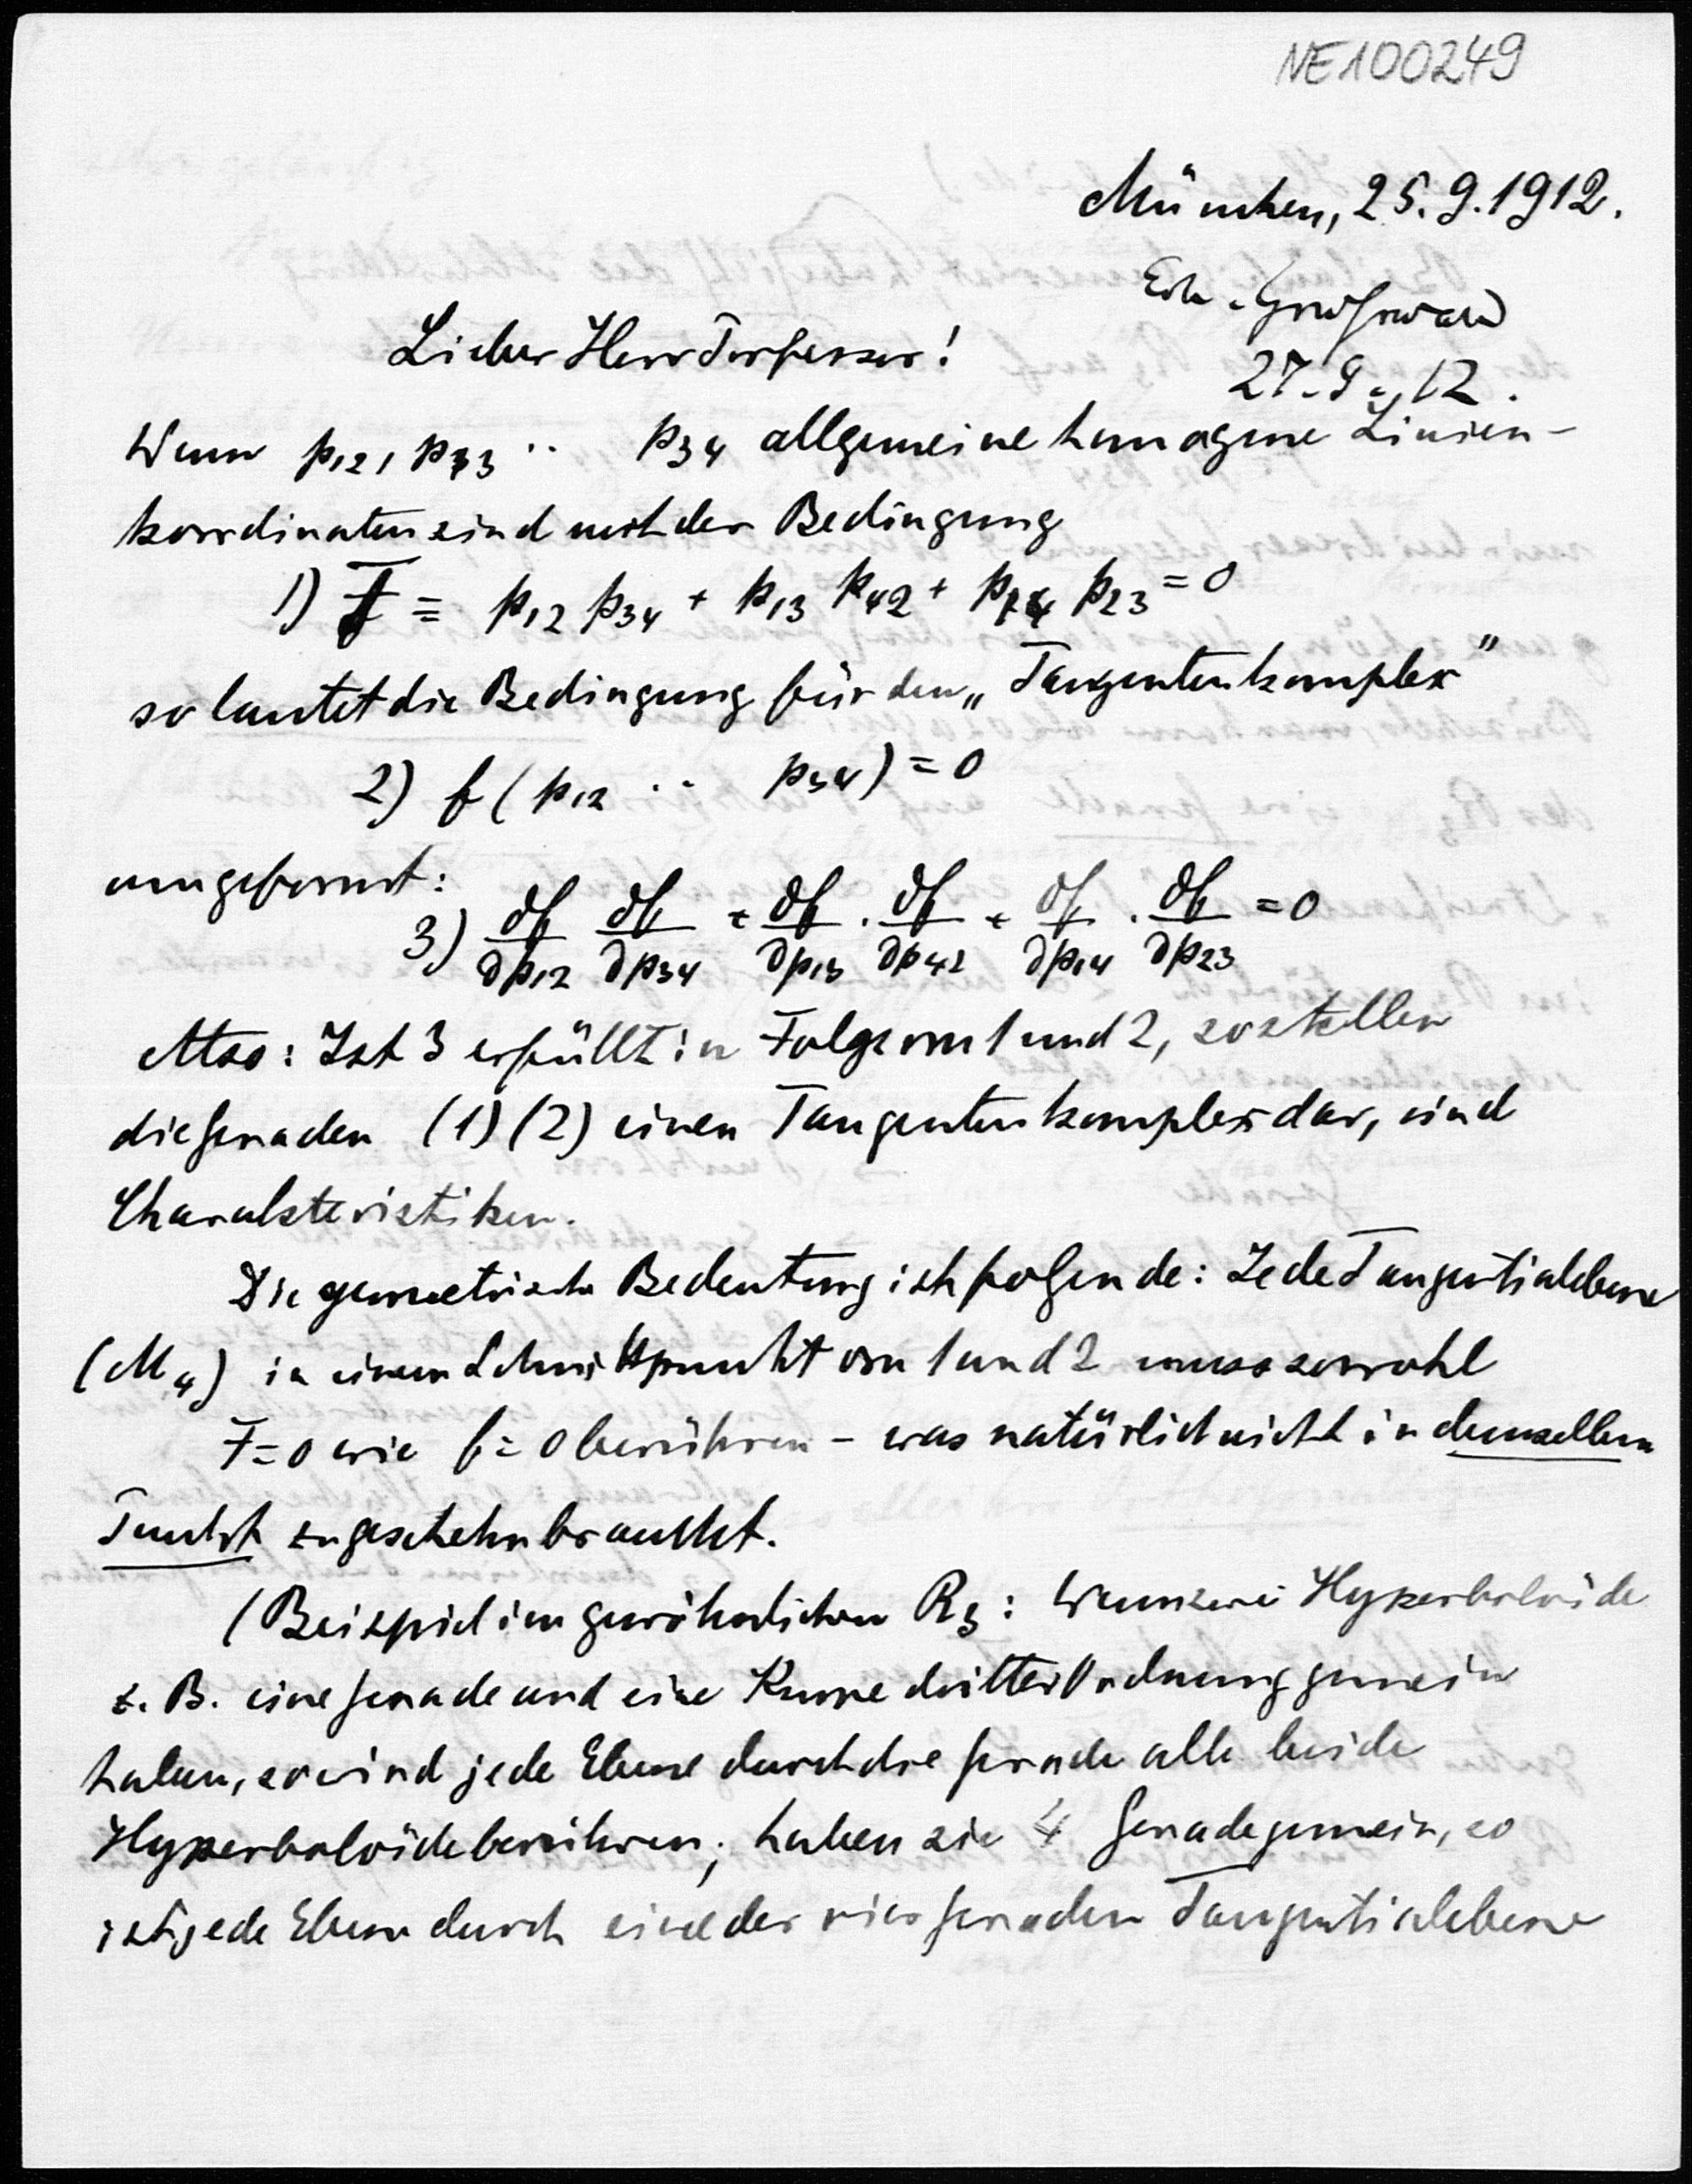 NE100249
München, 25.9.1912.
Erh. Greifswald
27.9.12.
Lieber Herr Professor!
Wenn p12, p13 .. p34 allgemeine homogene Linien-
koordinaten sind mit der Bedingung
1) F ≡ p12 p34 + p13 p42 + p14 p23 = 0
so lautet die Bedingung für den „Tangentenkomplex"
2) f(p12 .. p34) = 0
umgeformt:
3) ∂f/∂p12 ∂f/∂p34 + ∂f/∂p13 · ∂f/∂p42 + ∂f/∂p14 · ∂f/∂p23 = 0
Also: Ist 3 erfüllt in Folge von 1 und 2, so stellen
die Geraden (1) (2) einen Tangentenkomplex dar, sind
Charakteristiken.
Die geometrische Bedeutung ist folgende: Jede Tangentialebene
(M4) in einem Schnittpunkt von 1 und 2 muss sowohl
F=0 wie f=0 berühren – was natürlich nicht in demselben
Punkt zu geschehn braucht.
(Beispiel im gewöhnlichen R3: Wenn zwei Hyperboloide
z. B. eine Gerade und eine Kurve dritter Ordnung gemein
haben, so wird jede Ebene durch die Gerade alle beide
Hyperboloide berühren; haben sie 4 Gerade gemein, so
ist jede Ebene durch eine der vier Geraden Tangentialebene